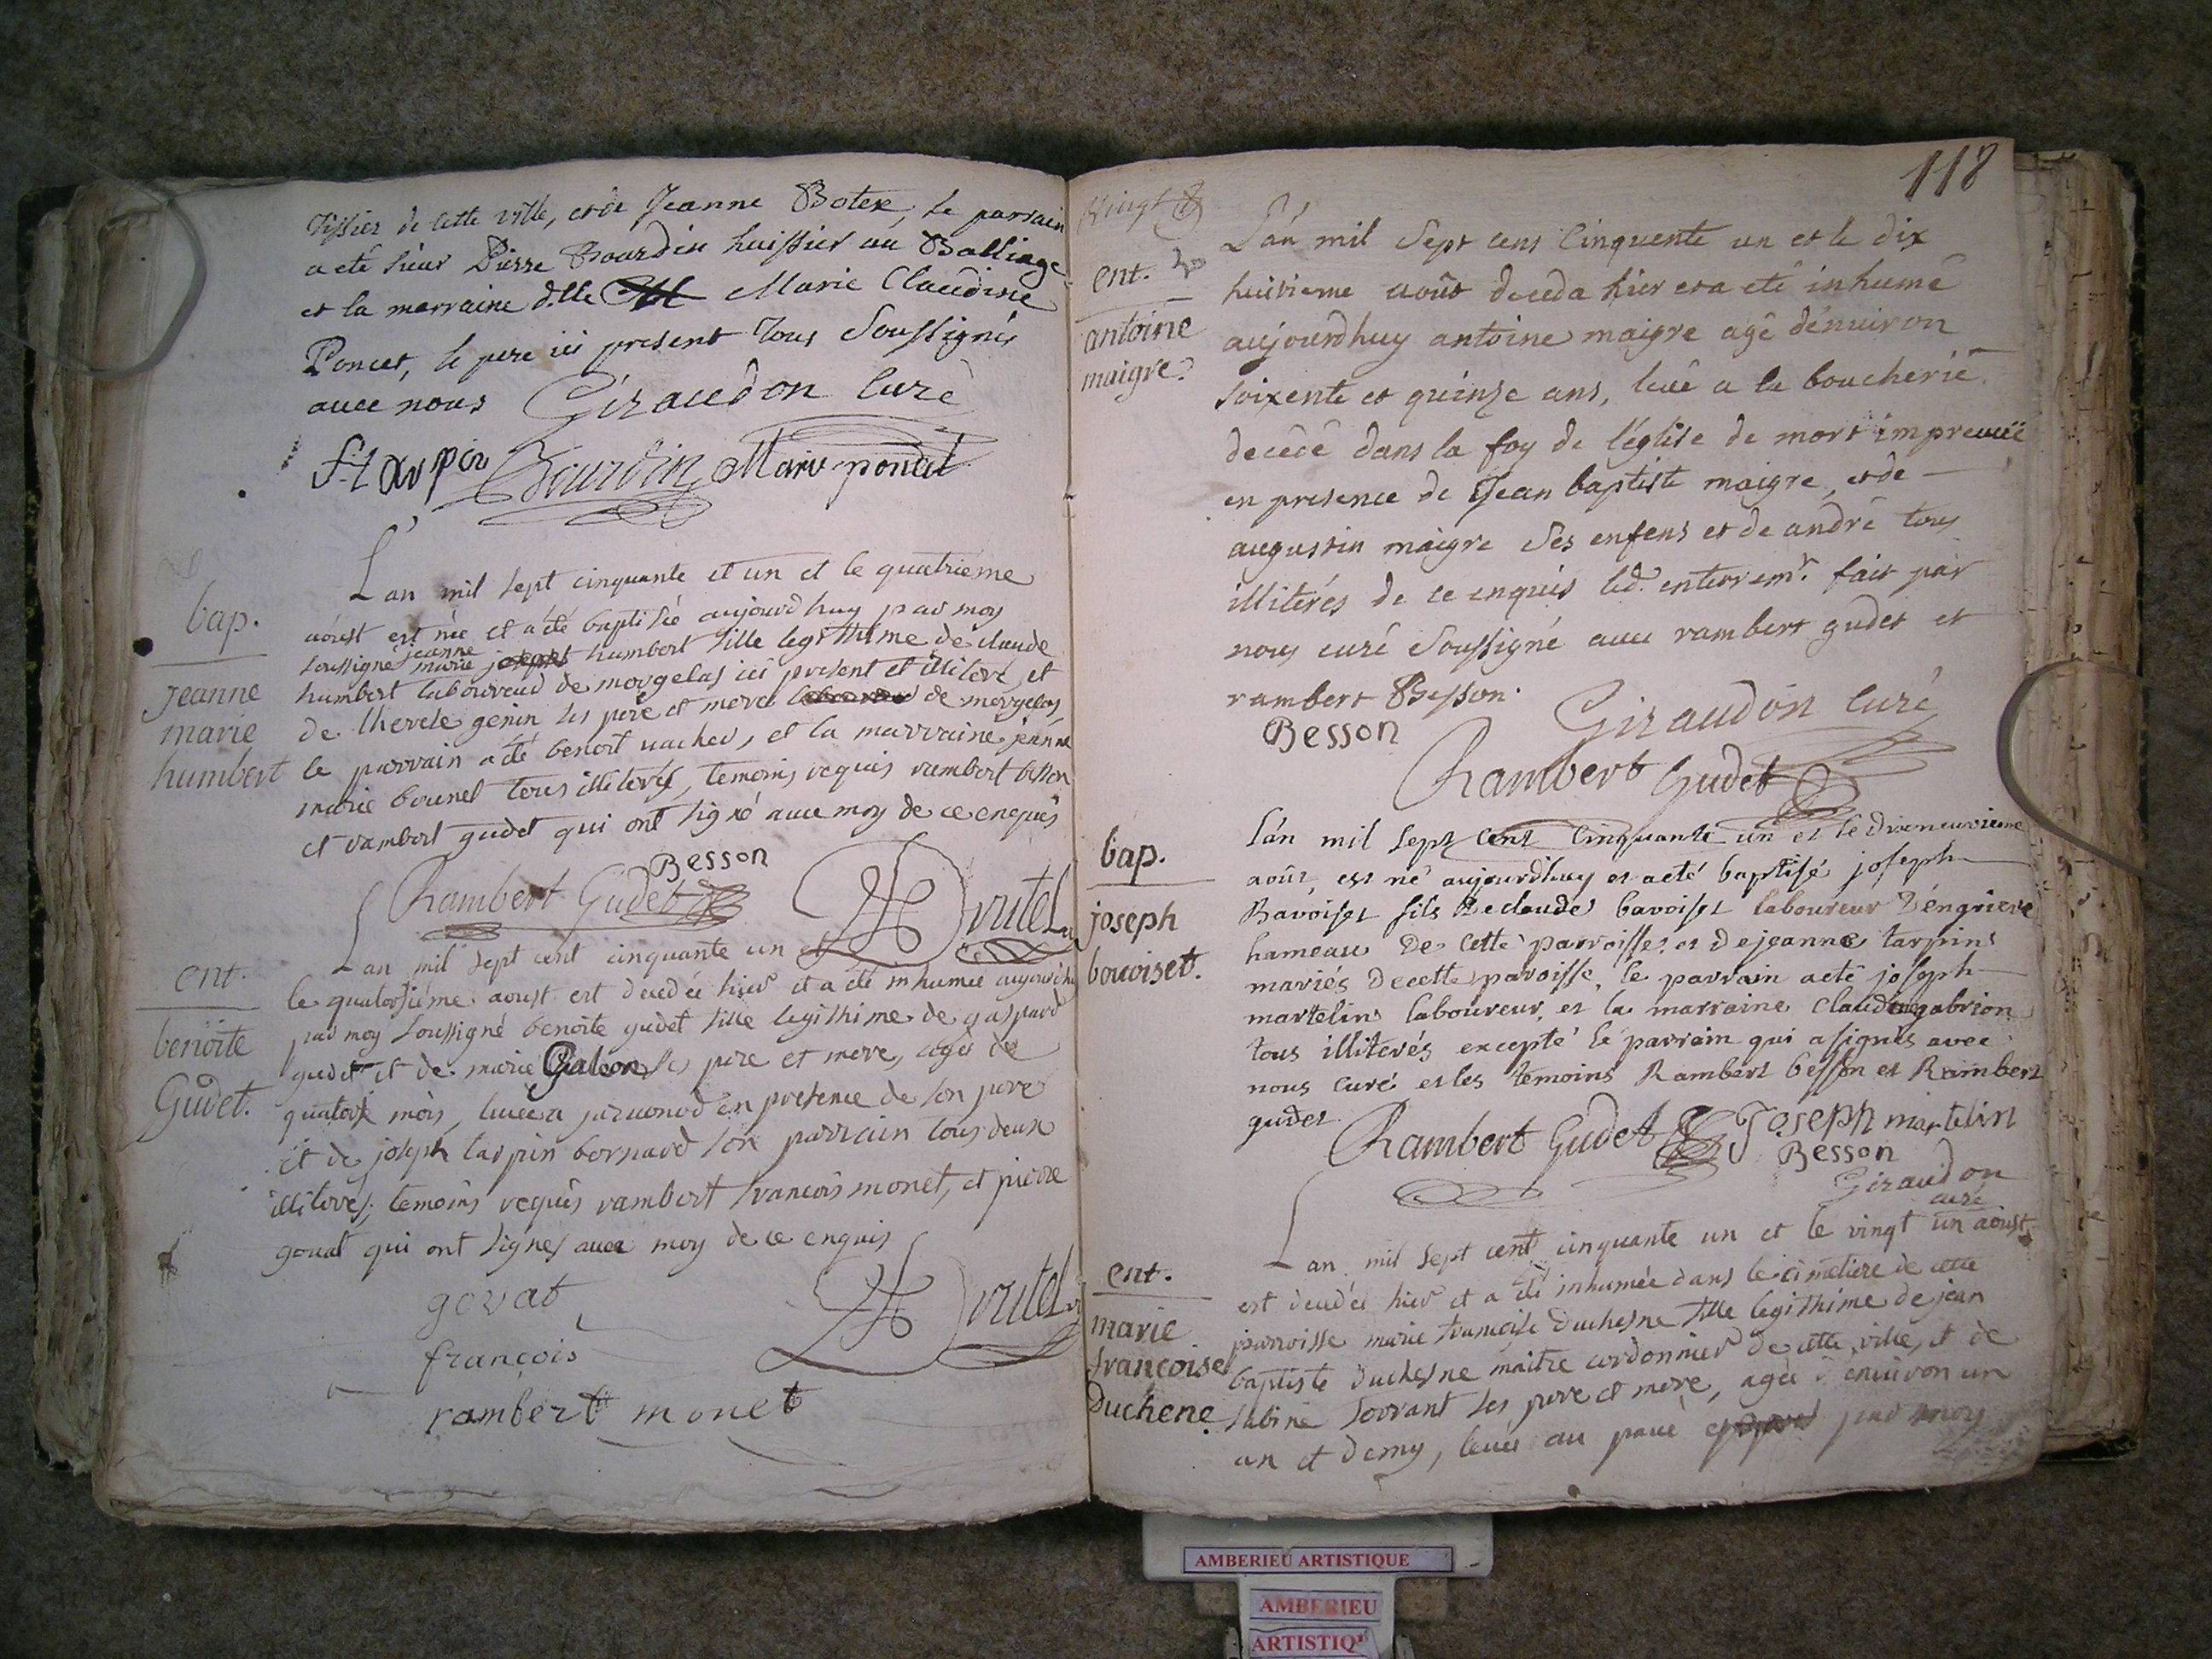 Tissier de cette ville, et de Jeanne Botex, le parrain
a eté sieur Pierre Bourdin huissier au Balliage
et la marraine d.lle Marie Claudine
Poncet, le pere ici present tous soussignés
avec nous Giraudon curé
Bourdin Marie poncet
bap.
jeanne
marie
humbert
L'an mil sept cinquante et un et le quatrieme
aoust est née et a été baptisée aujourdhuy par moy
soussigné jeanne marie humbert fille legithime de claude
humbert laboureur de morgelas ici present et illiteré, et
de genin ses pere et mere de morgelas,
le parrain a été benoit vacher, et la marraine jeanne
marie brunel tous illiterés, temoins requis rambert besson
et rambert gudet qui ont signé avec moy de ce enquis
Besson
Rambert Gudet
ent.
benoite
Gudet.
L'an mil sept cent cinquante un et
le quatorsiéme aoust est decedée hier et a été inhumée aujourdhuy
par moy soussigné benoite gudet fille legithime de gaspard
gudet et de marie Galeon ses pere et mere, agée de
quatorse mois, levée a en presence de son pere
et de joseph tarpin bernard son parrain tous deux
illiterés; temoins requis rambert francois monet, et pierre
govat qui ont signés avec moy de ce enquis
govat
françois
rambert monet
118
ent.
antoine
maigre
L'an mil sept cens cinquente un et le dix
huitieme août deceda hier et a eté inhumé
aujourdhuy antoine maigre agé dénuiron
soixente et quinze ans, levé a la boucherie
decédé dans la foy de l'église de mort impreuüe
en presence de Jean baptiste maigre, et de
augustin maigre ses enfens et de andré tous
illiterés de ce enquis led. enterrem.t fait par
nous curé soussigné avec rambert gudet et
rambert Besson.
Besson
Giraudon curé
Rambert Gudet
bap.
joseph
bovoiset.
L'an mil sept cent cinquante un et le dixneuvieme
août, est né aujourdhuy et a eté baptisé joseph
Bavoiset fils de claude bavoiset laboureur d'éngrieve
hameau de cette parroisse et de jeanne tarpin
mariés de cette paroisse, le parrain a eté joseph
martelin laboureur, et la marraine claudine gabrion
tous illiterés excepté le parrain qui a signés avec
nous curé et les témoins Rambert besson et Rambert
gudet
Rambert Gudet
Joseph martelin
Besson
Giraudon
curé
ent.
marie
francoise
Duchene.
L'an mil sept cent cinquante un et le vingt un aoust
est decedée hier et a été inhumée dans le cimetiere de cette
parroisse marie francoise duchesne fille legithime de jean
baptiste duchesne maitre cordonnier de cette ville, et de
sabine ses pere et mere, agée d'environ un
an et demy, levée au pavé par moy
AMBERIEU ARTISTIQUE
AMBERIEU
ARTISTIQ